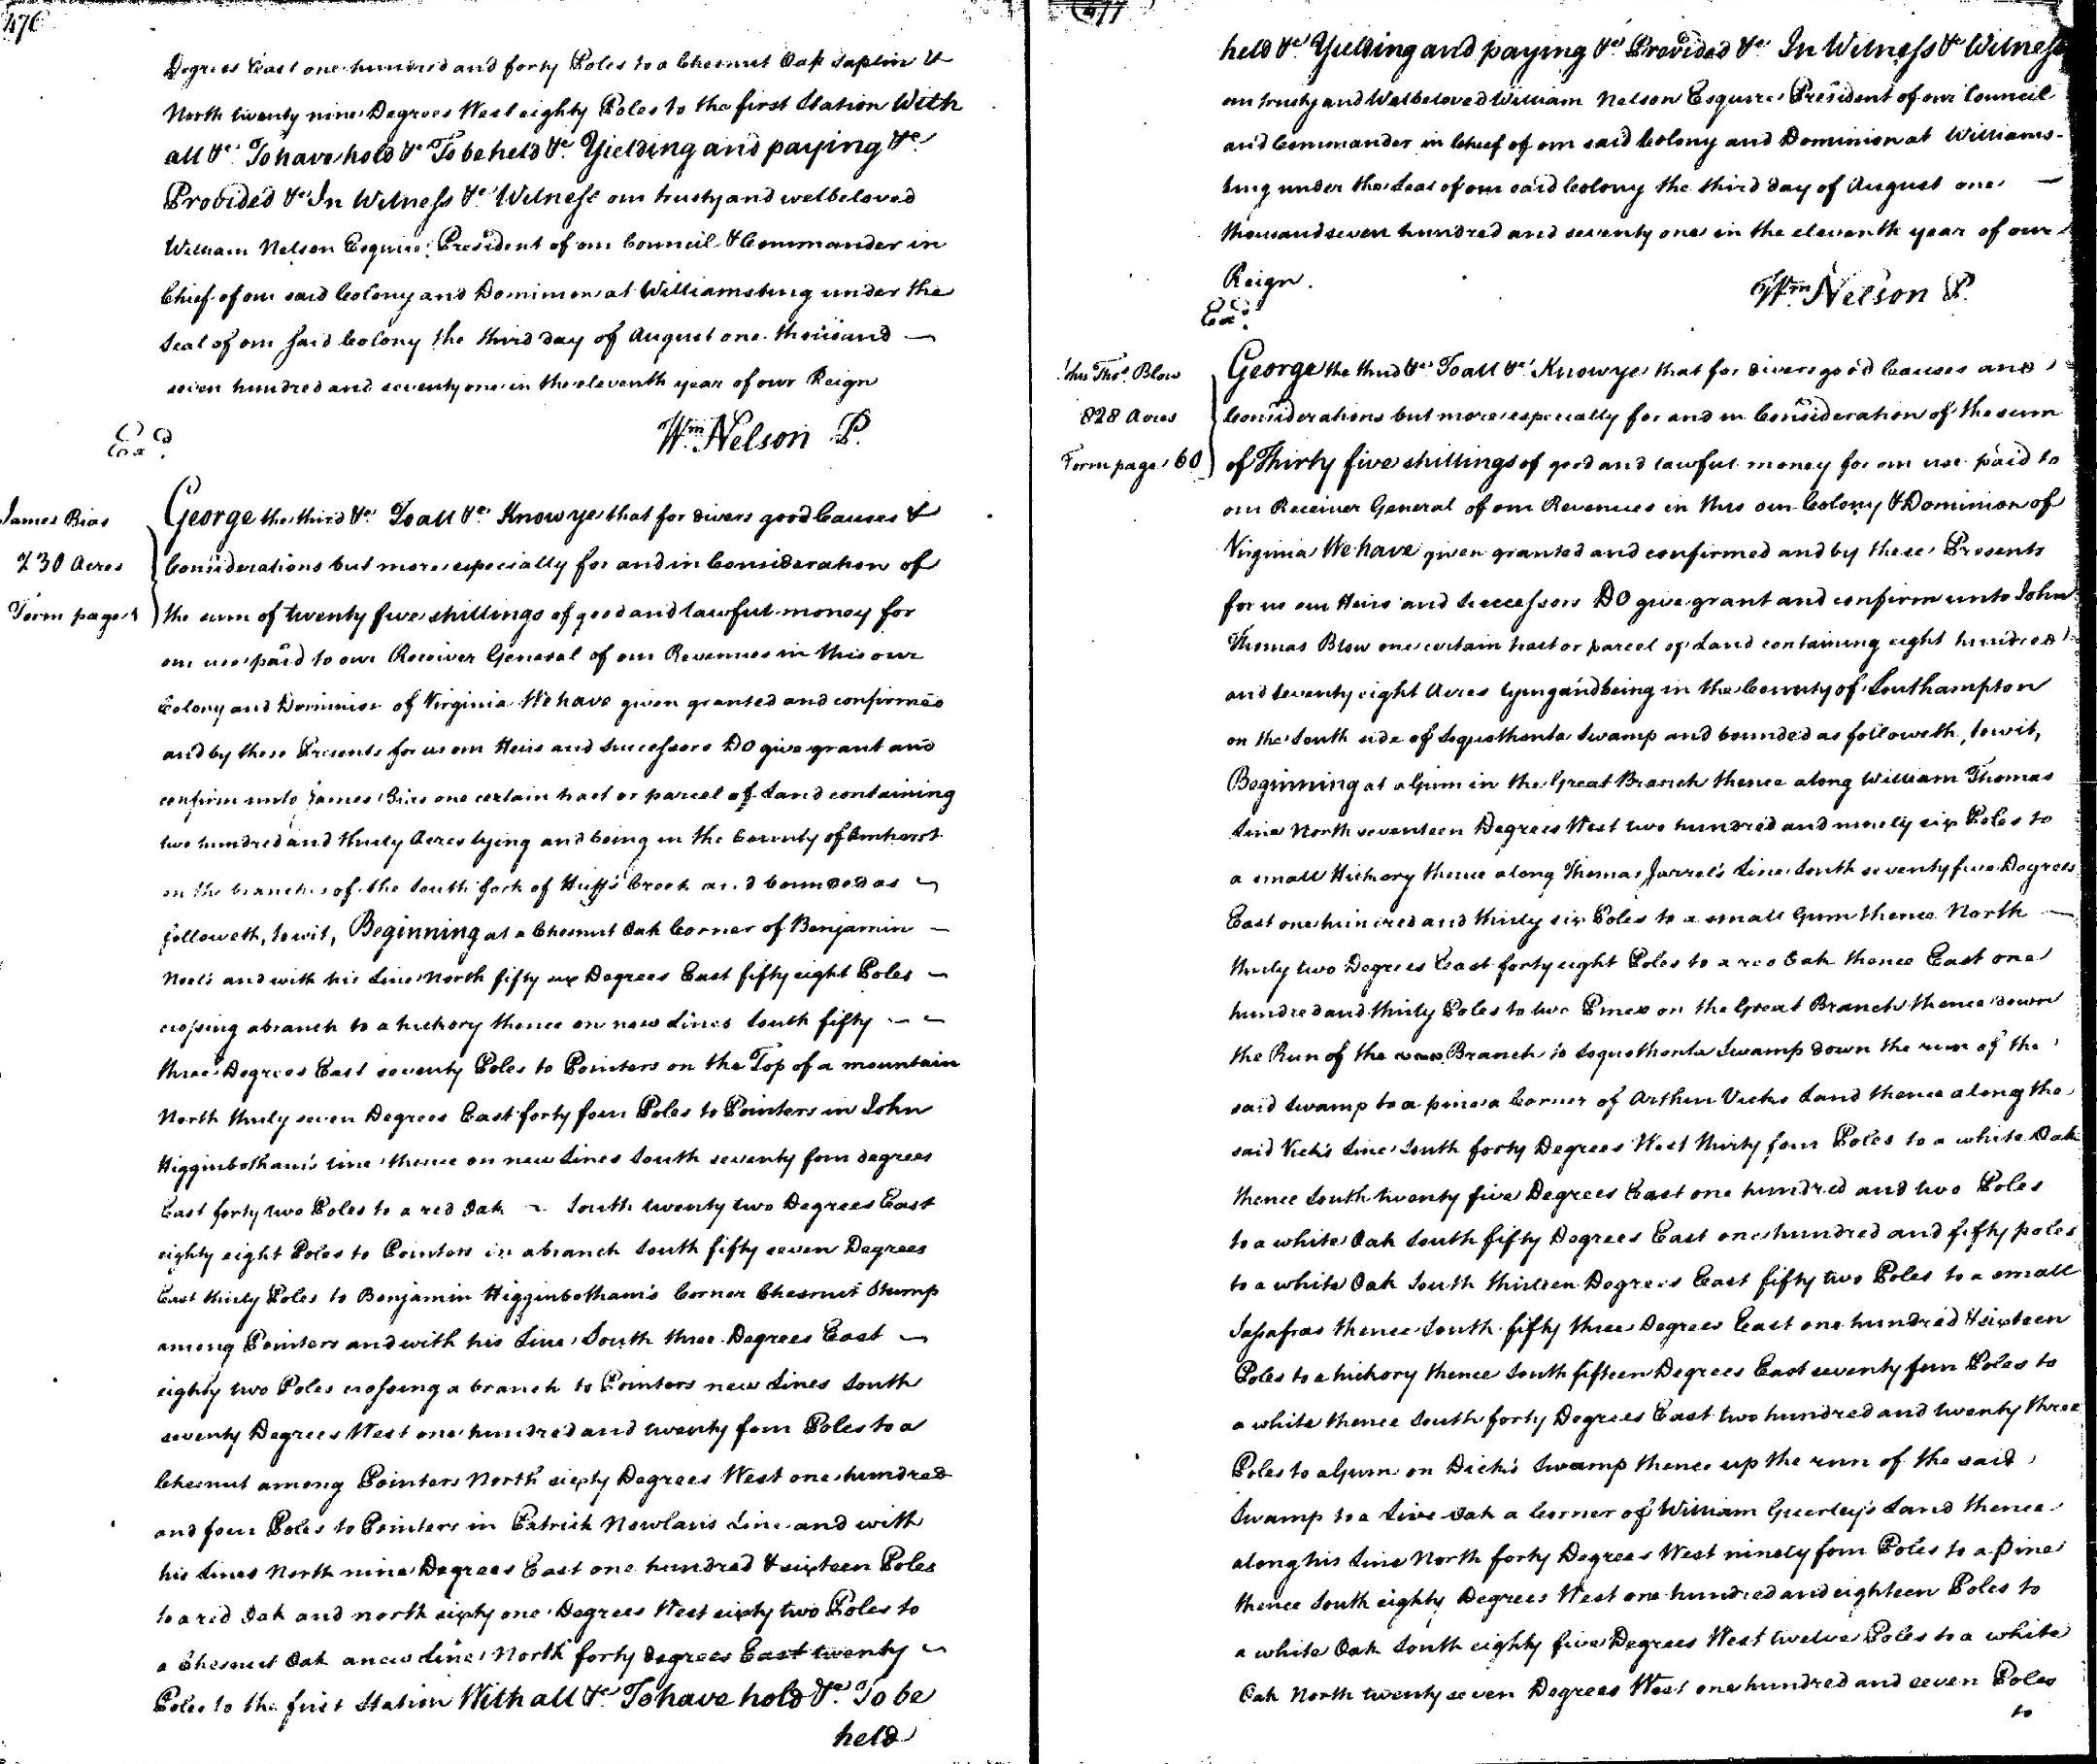 476
Degrees East one hundred and forty Poles to a Chesnut Oak Saplin &
North twenty nine Degrees West eighty Poles to the first Station With
all &c. To have hold &c To be held &c. Yielding and paying &c.
Provided &c In Witness &c. Witness our trusty and welbeloved
William Nelson Esquire President of our Council & Commander in
Chief of our said Colony and Dominion at Williamsburg under the
Seal of our said Colony the third day of August one thousand —
seven hundred and seventy one in the eleventh year of our Reign
Wm. Nelson P.
James Bias
230 Acres
Form page 1
George the third &c. To all &c. Know ye that for divers good Causes &
Considerations but more especially for and in Consideration of
the sum of twenty five shillings of good and lawful money for
our use paid to our Receiver General of our Revenues in this our
Colony and Dominion of Virginia We have given granted and confirmed
and by these Presents for us our Heirs and Successors Do give grant and
confirm unto James Bias one certain tract or parcel of Land containing
two hundred and thirty Acres lying and being in the County of Amherst
on the branches of the South fork of Huff's Creek and bounded as
followeth, to wit, Beginning at a Chesnut Oak Corner of Benjamin —
Noel's and with his Line North fifty six Degrees East fifty eight Poles —
crossing a branch to a hickory thence on new Lines South fifty — —
three Degrees East seventy Poles to Pointers on the Top of a mountain
North thirty seven Degrees East forty four Poles to Pointers in John
Higginbotham's line thence on new Lines South seventy four degrees
East forty two Poles to a red Oak ~ South twenty two Degrees East
eighty eight Poles to Pointers in a branch South fifty seven Degrees
East thirty Poles to Benjamin Higginbotham's Corner Chesnut Stump
among Pointers and with his Line South three Degrees East —
eighty two Poles crossing a branch to Pointers new Lines South
seventy Degrees West one hundred and twenty four Poles to a
Chesnut among Pointers North sixty Degrees West one hundred
and four Poles to Pointers in Patrick Nowlan's Line and with
his Lines North nine Degrees East one hundred & sixteen Poles
to a red Oak and north sixty one Degrees West sixty two Poles to
a Chesnut Oak a new Line North forty degrees East twenty —
Poles to the first Station With all &c. To have hold &c. To be
held
477
held &c. Yielding and paying &c. Provided &c. In Witness &c Witness
our trusty and Welbeloved William Nelson Esquire President of our Council
and Commander in Chief of our said Colony and Dominion at Williams-
burg under the Seal of our said Colony the third day of August one —
thousand seven hundred and seventy one in the eleventh year of our
Reign.
Wm. Nelson P.
Jno. Thos. Blow
828 Acres
Form page 60
George the third &c. To all &c. Know ye that for divers good Causes and
Considerations but more especially for and in Consideration of the sum
of Thirty five shillings of good and lawful money for our use paid to
our Receiver General of our Revenues in this our Colony & Dominion of
Virginia We have given granted and confirmed and by these Presents
for us our Heirs and Successors DO give grant and confirm unto John
Thomas Blow one certain tract or parcel of Land containing eight hundred
and seventy eight Acres lying and being in the County of Southampton
on the South side of Sequothonta Swamp and bounded as followeth, to wit,
Beginning at a Gum in the Great Branch thence along William Thomas
Line North seventeen Degrees West two hundred and ninety six Poles to
a small Hickory thence along Thomas Jarrel's Line South seventy five Degrees
East one hundred and thirty six Poles to a small Gum thence North —
thirty two Degrees East forty eight Poles to a red Oak thence East one
hundred and thirty Poles to two Pines on the Great Branch thence down
the Run of the Branch to Sequothonta Swamp down the run of the
said Swamp to a pine a Corner of Arthur Vicks Land thence along the
said Vick's Line South forty Degrees West thirty four Poles to a white Oak
thence South twenty five Degrees East one hundred and two Poles
to a white Oak South fifty Degrees East one hundred and fifty poles
to a white Oak South thirteen Degrees East fifty two Poles to a small
Sassafras thence South fifty three Degrees East one hundred & sixteen
Poles to a hickory thence South fifteen Degrees East seventy four Poles to
a white thence South forty Degrees East two hundred and twenty three
Poles to a Gum on Dick's Swamp thence up the run of the said
Swamp to a Live Oak a Corner of William Guerley's Land thence
along his Line North forty Degrees West ninety four Poles to a Pine
thence South eighty Degrees West one hundred and eighteen Poles to
a white Oak South eighty five Degrees West twelve Poles to a white
Oak North twenty seven Degrees West one hundred and seven Poles
to